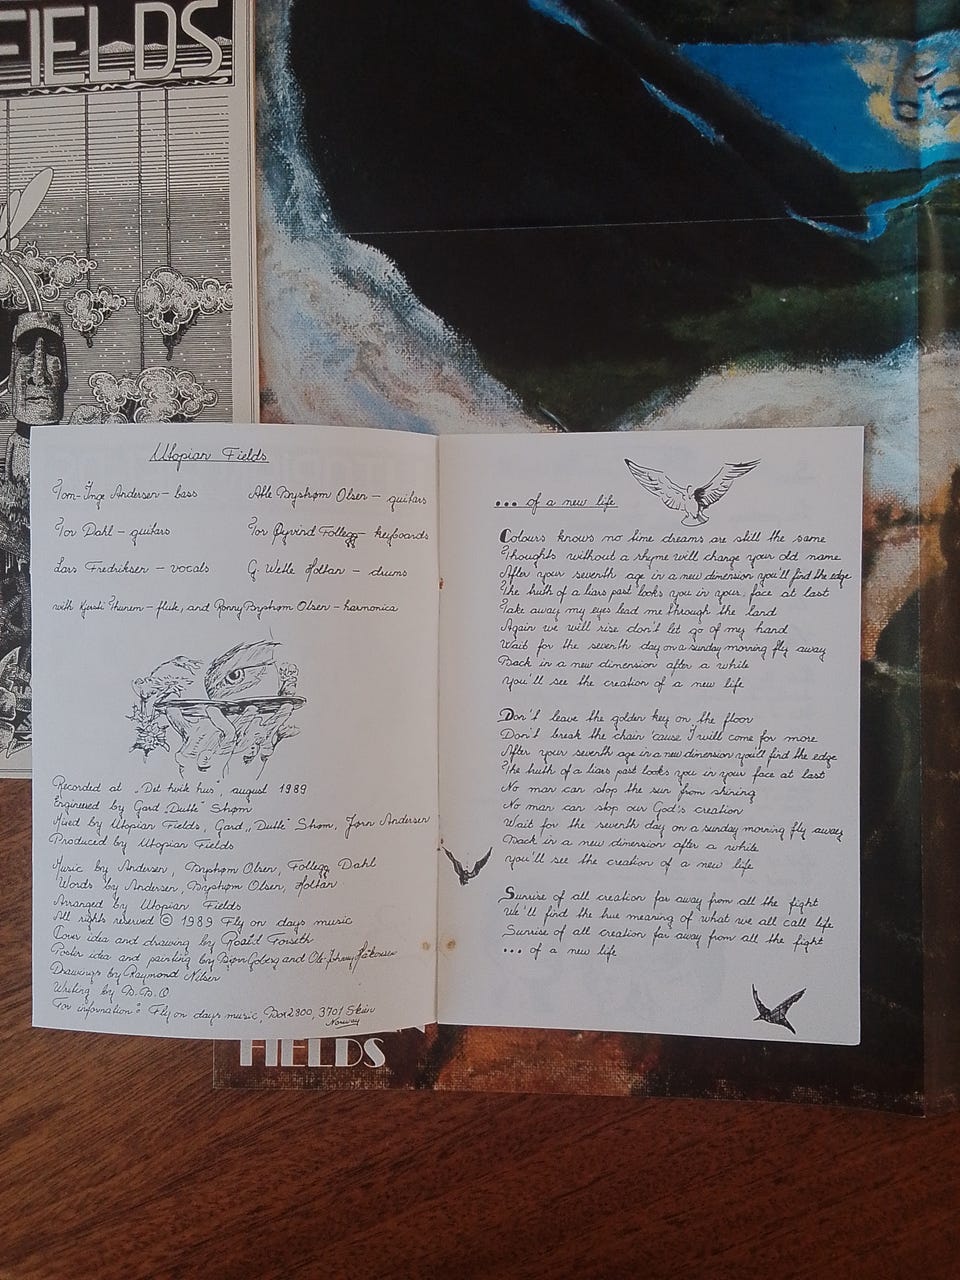 FIELDS
Utopian Fields
Tom-Inge Andersen – bass
Atle Byshøm Olsen – guitars
Tor Dahl – guitars
Tor Øyvind Follegg – keyboards
Lars Fredriksen – vocals
G. Wetle Holtan – drums
with Kjersti Thunem – flute, and Ronny Byshøm Olsen – harmonica
Recorded at „Det hvite hus", august 1989
Engineered by Gard „Dutte" Strøm
Mixed by Utopian Fields, Gard „Dutte" Strøm, Jørn Andersen
Produced by Utopian Fields
Music by Andersen, Byshøm Olsen, Follegg, Dahl
Words by Andersen, Byshøm Olsen, Holtan
Arranged by Utopian Fields
All rights reserved © 1989 Fly on days music
Cover idea and drawing by Roald Forseth
Poster idea and painting by and Ole-Johnny
Drawings by Raymond Nilsen
Writing by B.B.O
For information: Fly on days music, Box 2800, 3701 Skien
Norway
... of a new life
Colours knows no time dreams are still the same
Thoughts without a rhyme will change your old name
After your seventh age in a new dimension you'll find the edge
The truth of a liars past looks you in your face at last
Take away my eyes lead me through the land
Again we will rise don't let go of my hand
Wait for the seventh day on a sunday morning fly away
Back in a new dimension after a while
you'll see the creation of a new life
Don't leave the golden key on the floor
Don't break the chain 'cause I will come for more
After your seventh age in a new dimension you'll find the edge
The truth of a liars past looks you in your face at last
No man can stop the sun from shining
No man can stop our God's creation
Wait for the seventh day on a sunday morning fly away
Back in a new dimension after a while
you'll see the creation of a new life
Sunrise of all creation far away from all the fight
We'll find the true meaning of what we all call life
Sunrise of all creation far away from all the fight
... of a new life
FIELDS